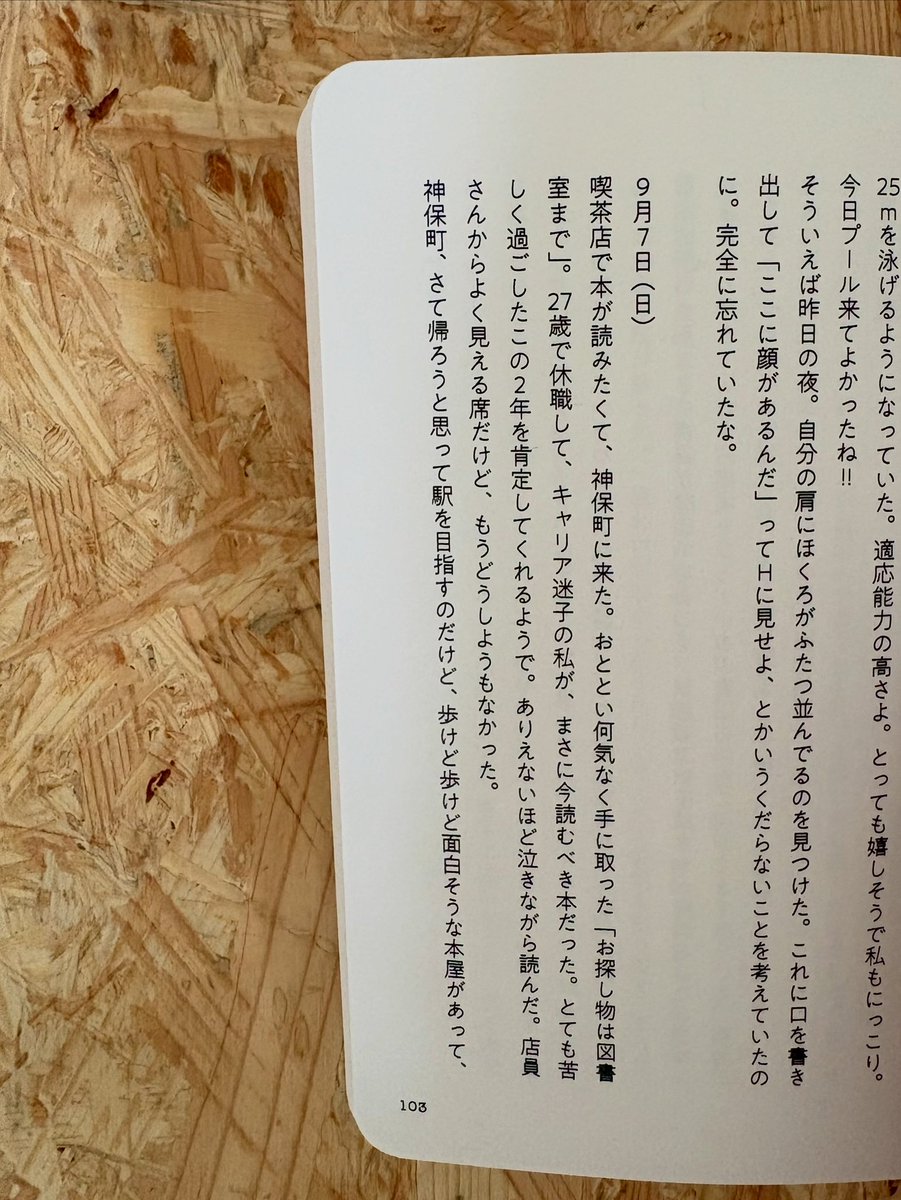 25mを泳げるようになっていた。適応能力の高さよ。とっても嬉しそうで私もにっこり。
今日プール来てよかったね!!
そういえば昨日の夜。自分の肩にほくろがふたつ並んでるのを見つけた。これに口を書き
出して「ここに顔があるんだ」ってHに見せよ、とかいうくだらないことを考えていたの
に。完全に忘れていたな。
9月7日(日)
喫茶店で本が読みたくて、神保町に来た。おととい何気なく手に取った「お探し物は図書
室まで」。27歳で休職して、キャリア迷子の私が、まさに今読むべき本だった。とても苦
しく過ごしたこの2年を肯定してくれるようで。ありえないほど泣きながら読んだ。店員
さんからよく見える席だけど、もうどうしようもなかった。
神保町、さて帰ろうと思って駅を目指すのだけど、歩けど歩けど面白そうな本屋があって、
103